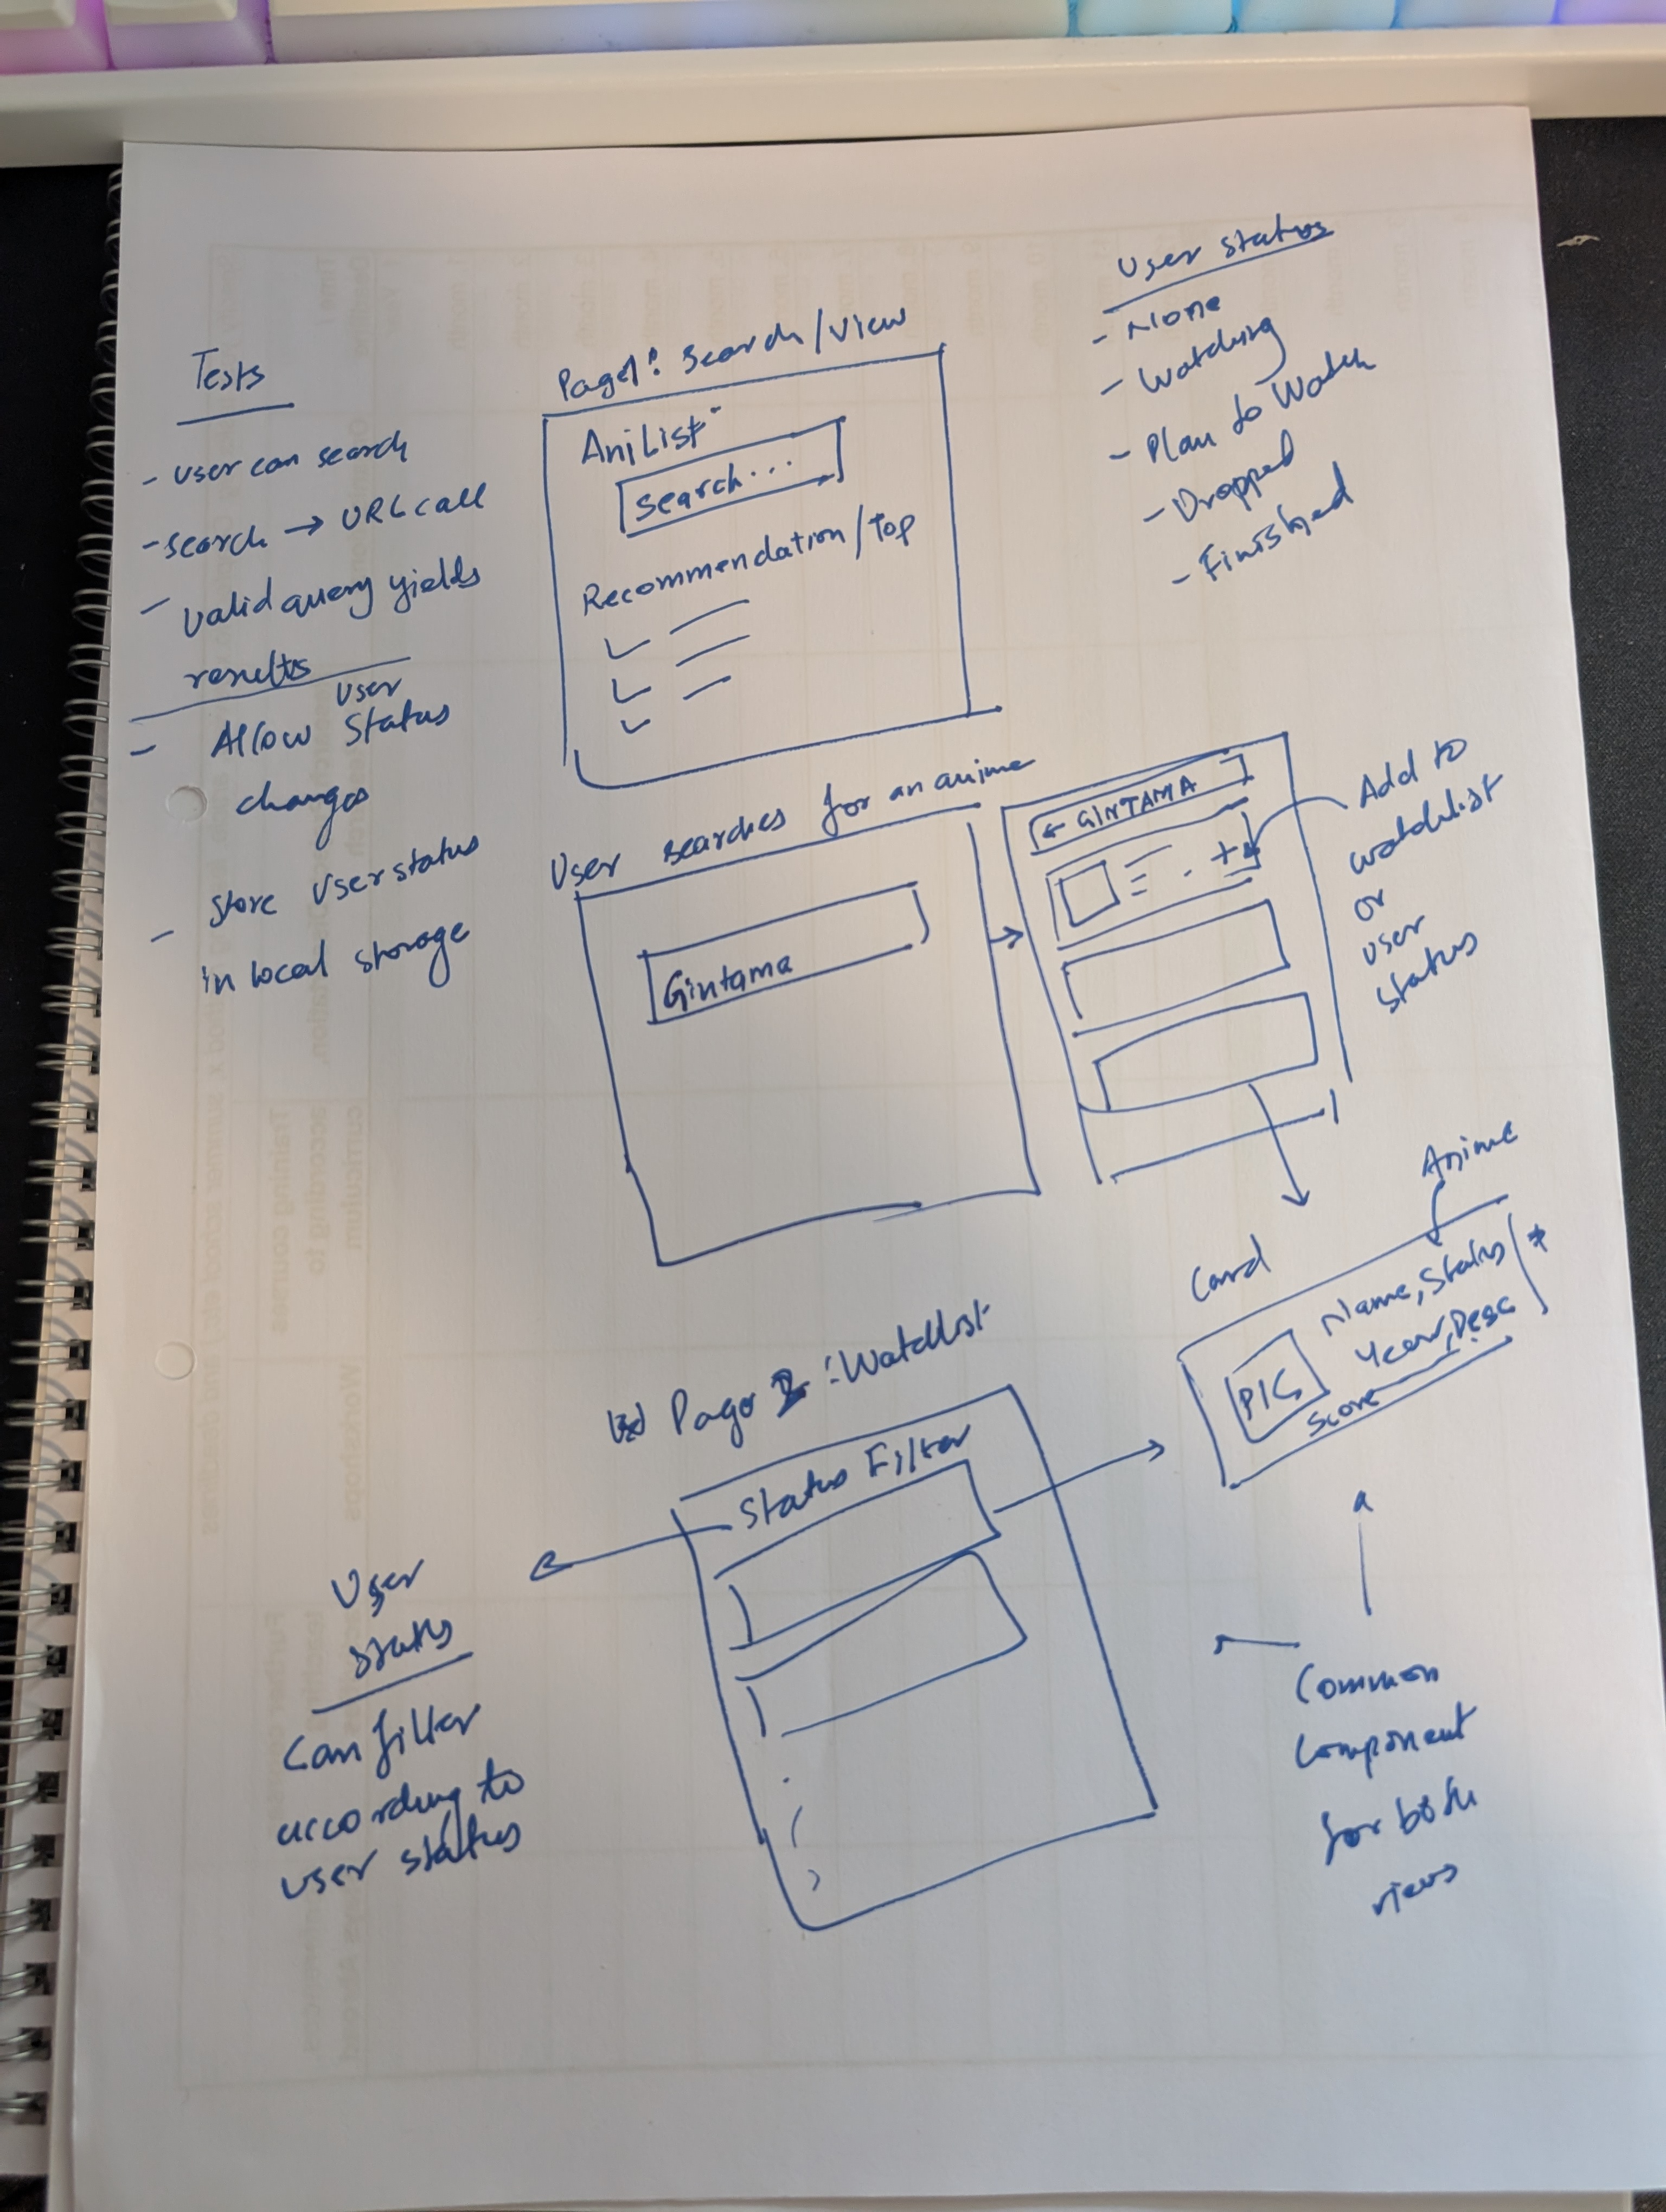 Tests
- user can search
- search → URL call
- valid query yields
results
- Allow User Status
changes
- Store User status
in local storage
Page 1: Search/View
AniList
Search...
Recommendation/Top
User status
- None
- Watching
- Plan to Watch
- Dropped
- Finished
User searches for an anime
Gintama
← GINTAMA
+
Add to
watchlist
or
user
status
Card
Anime
Name, Status
Year, Desc
PIC
Score
*
Page 2: Watchlist
Status Filter
User
status
Can filter
according to
user status
Common
component
for both
views